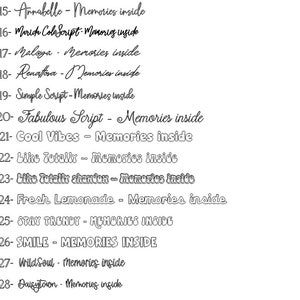 15- Annabelle - Memories inside
16- Mariah Cole Script - Memories inside
17- Malaya - Memories inside
18- - Memories inside
19- Simple Script - Memories inside
20- Fabulous Script - Memories inside
21- Cool Vibes - Memories inside
22- Like Totally - Memories inside
23- Like Totally shadow - Memories inside
24- Fresh Lemonade - Memories inside
25- STAY TRENDY - MEMORIES INSIDE
26- SMILE - MEMORIES INSIDE
27- WildSoul - Memories inside
28- Daisytown - Memories inside